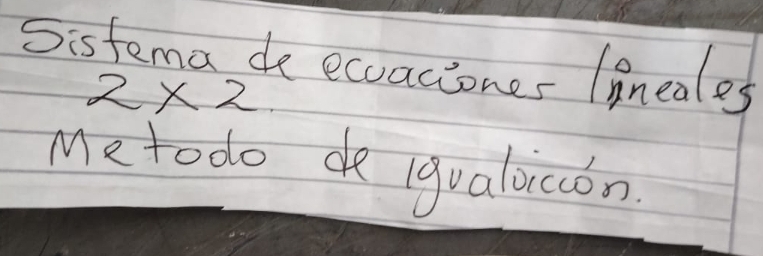 Sistema de ecuaciones lineales
2 x 2.
Metodo de igualación.